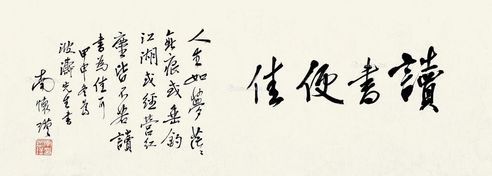 讀書便佳
人生如夢茫茫
無痕或垂釣
江湖或經營紅
塵皆不若讀
書為佳耳
甲申冬為
波濤先生書
南懷瑾